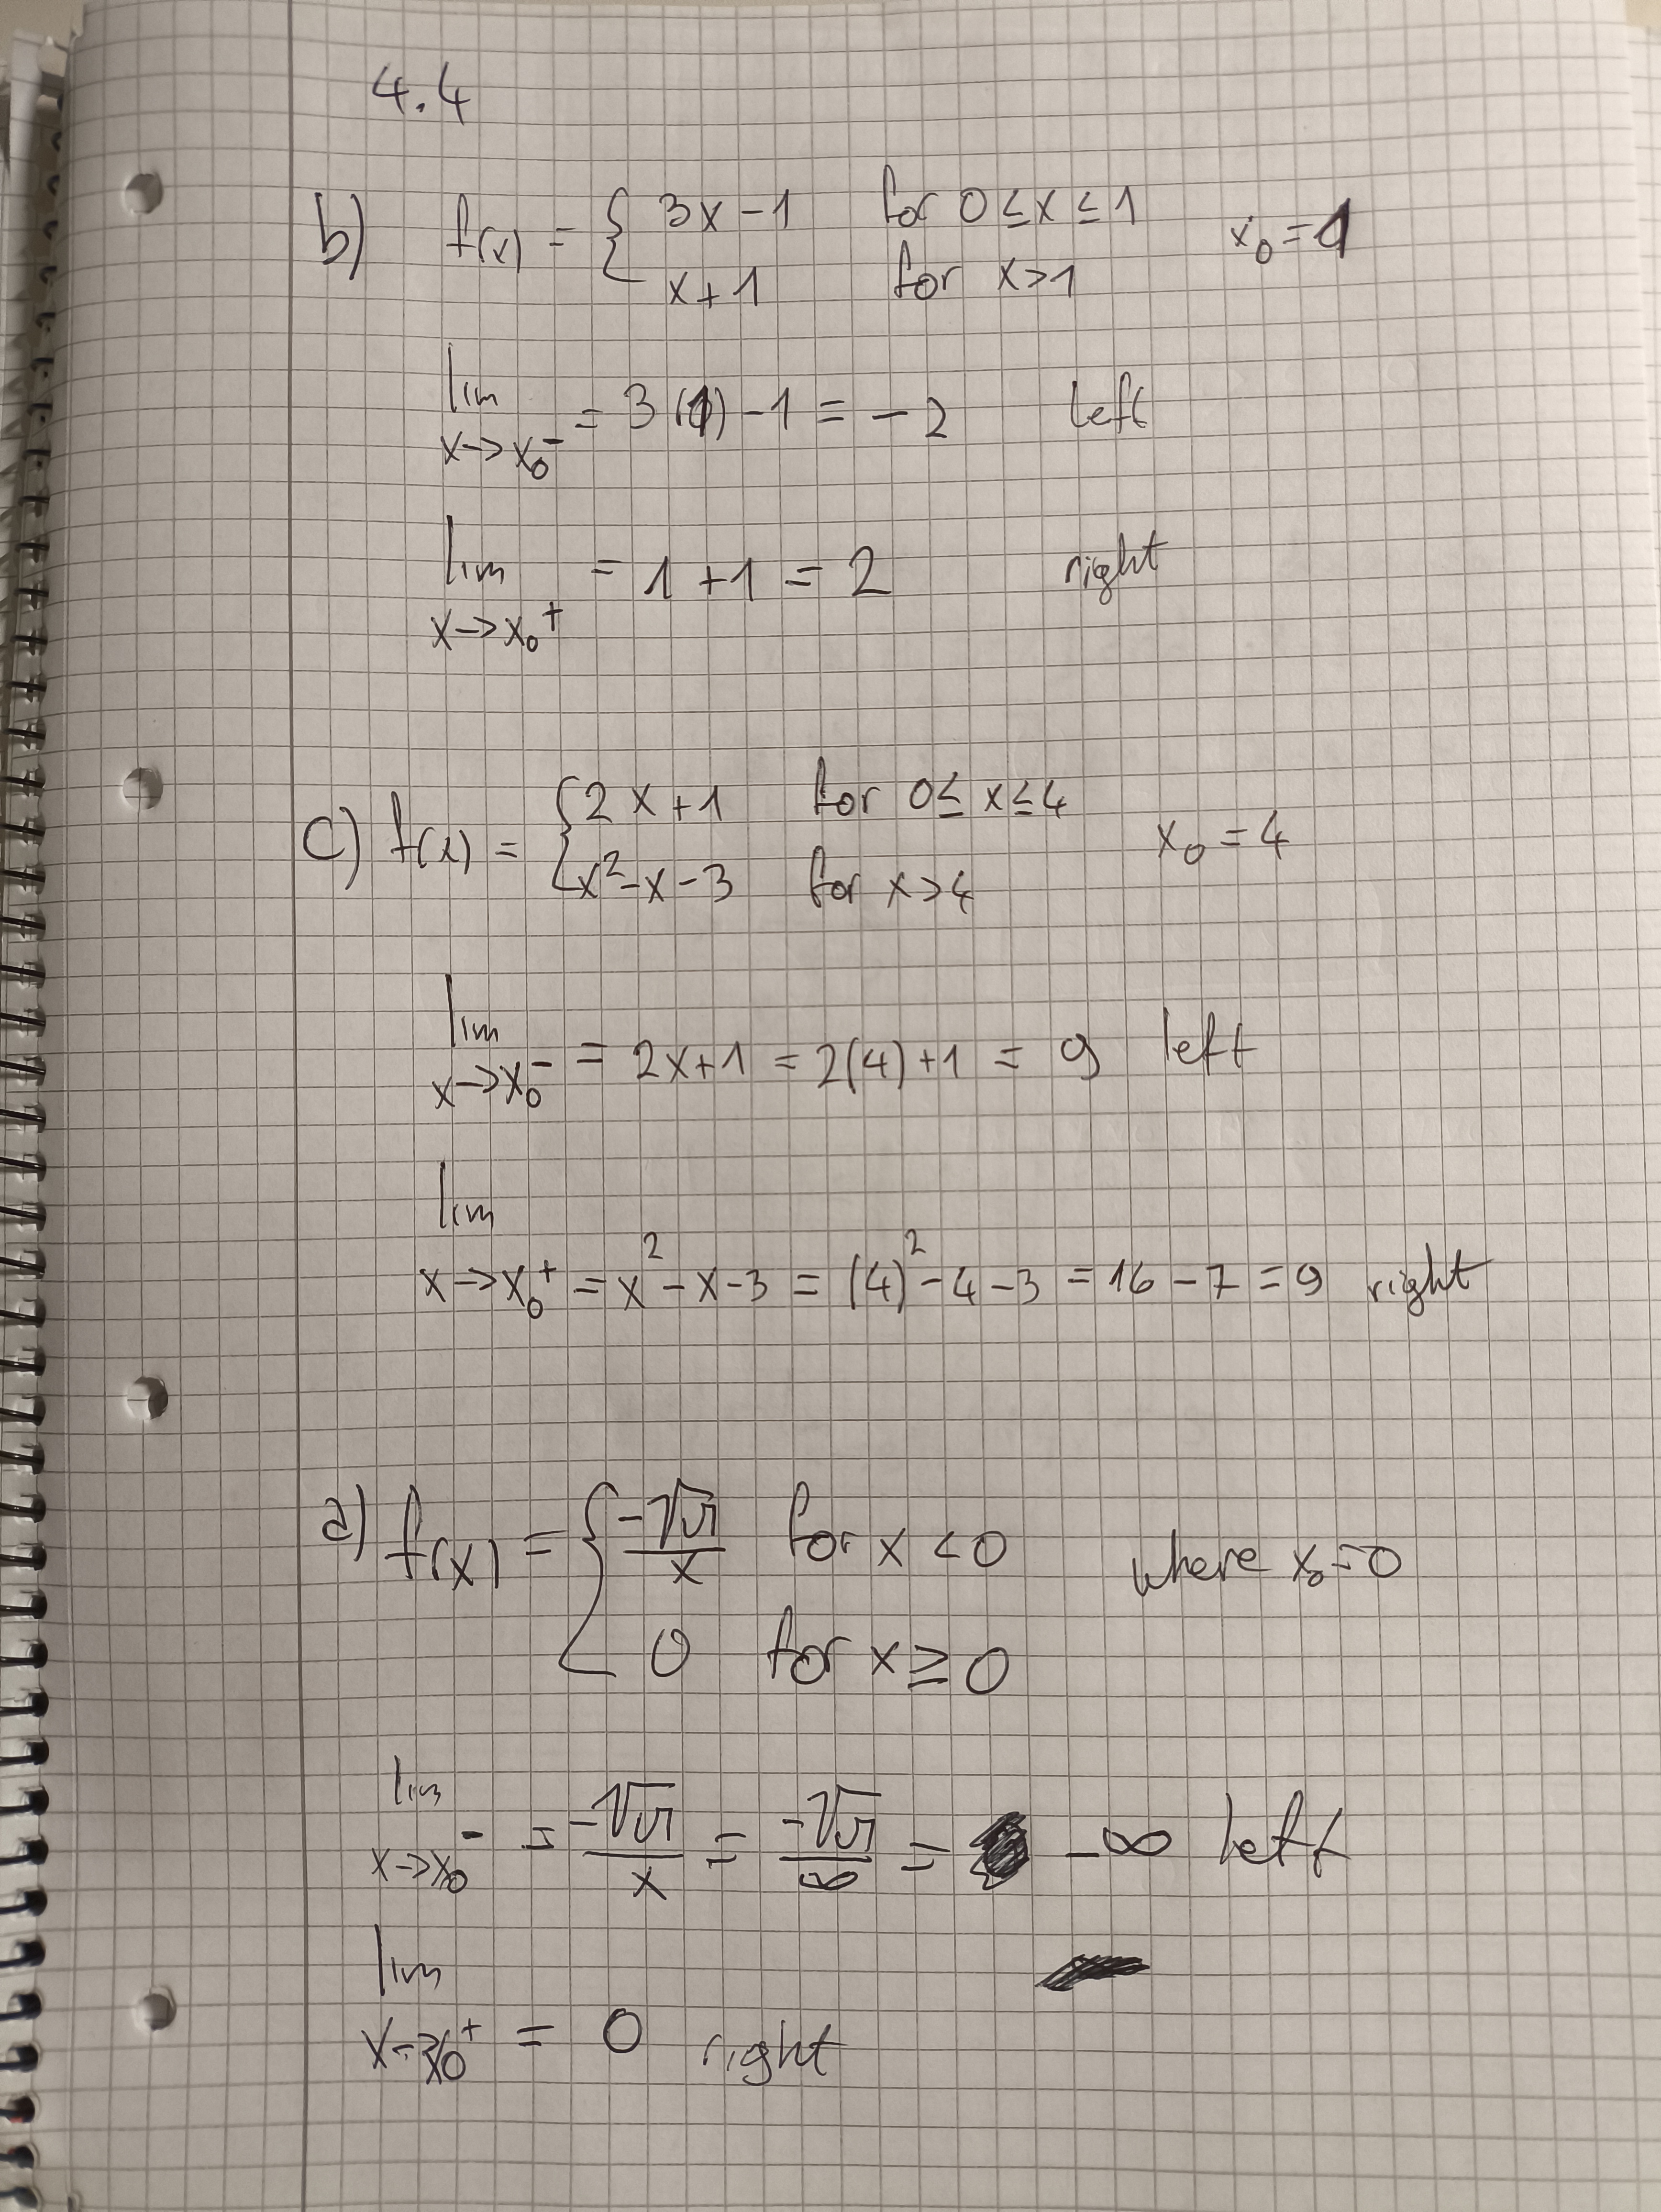 4.4
b) f(x) = { 3x - 1 for 0 ≤ x ≤ 1 x₀ = 1
x + 1 for x > 1
lim x→x₀⁻ = 3(1) - 1 = - 2 left
lim x→x₀⁺ = 1 + 1 = 2 right
c) f(x) = { 2x + 1 for 0 ≤ x ≤ 4 x₀ = 4
x² - x - 3 for x > 4
lim x→x₀⁻ = 2x + 1 = 2(4) + 1 = 9 left
lim x→x₀⁺ = x² - x - 3 = (4)² - 4 - 3 = 16 - 7 = 9 right
a) f(x) = { -√ / x for x < 0 where x₀ = 0
0 for x ≥ 0
lim x→x₀⁻ = -√ / x = -√ / ∞ = -∞ left
lim x→x₀⁺ = 0 right